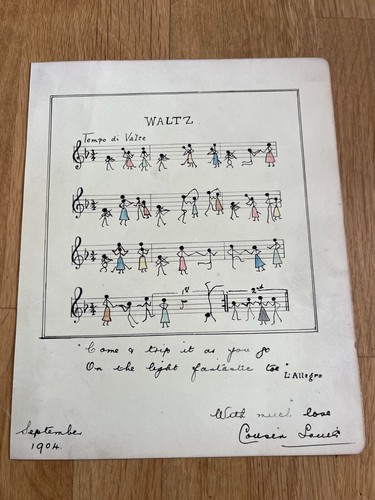 WALTZ
Tempo di Valse
1st
2nd
"Come & trip it as you go
On the light fantastic toe"
L'Allegro
With much love
Cousin Louis
September
1904.